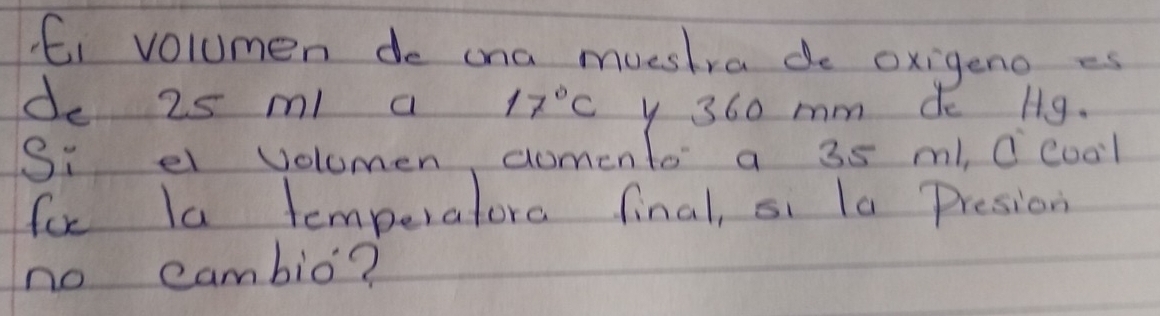 El volumen de una muestra de oxigeno es
de 25 ml a 17°C y 360 mm de Hg.
Si el volumen aumentó a 35 ml, ¿cual
fue la temperatura final, si la Presion
no cambió?